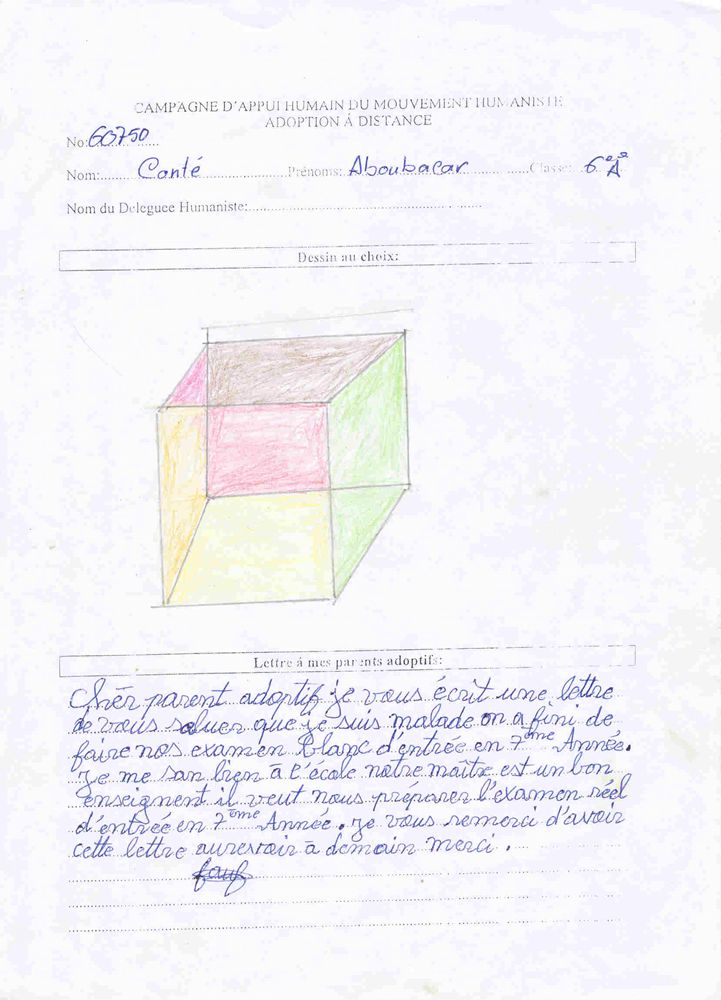 CAMPAGNE D'APPUI HUMAIN DU MOUVEMENT HUMANISTE
ADOPTION Á DISTANCE
No: 60750
Nom: Conté Prénoms: Aboubacar Classe: 6e A
Nom du Deleguee Humaniste:
Dessin au choix:
Lettre á mes parents adoptifs:
Cher parent adoptif je vous écrit une lettre
de vous saluer que je suis malade on a fini de
faire nos examen blanc d'entrée en 7ème Année.
Je me san bien à l'école notre maître est un bon
enseignent il veut nous préparer l'examen réel
d'entrée en 7ème Année. je vous remerci d'avoir
cette lettre aurevoir à demain merci.